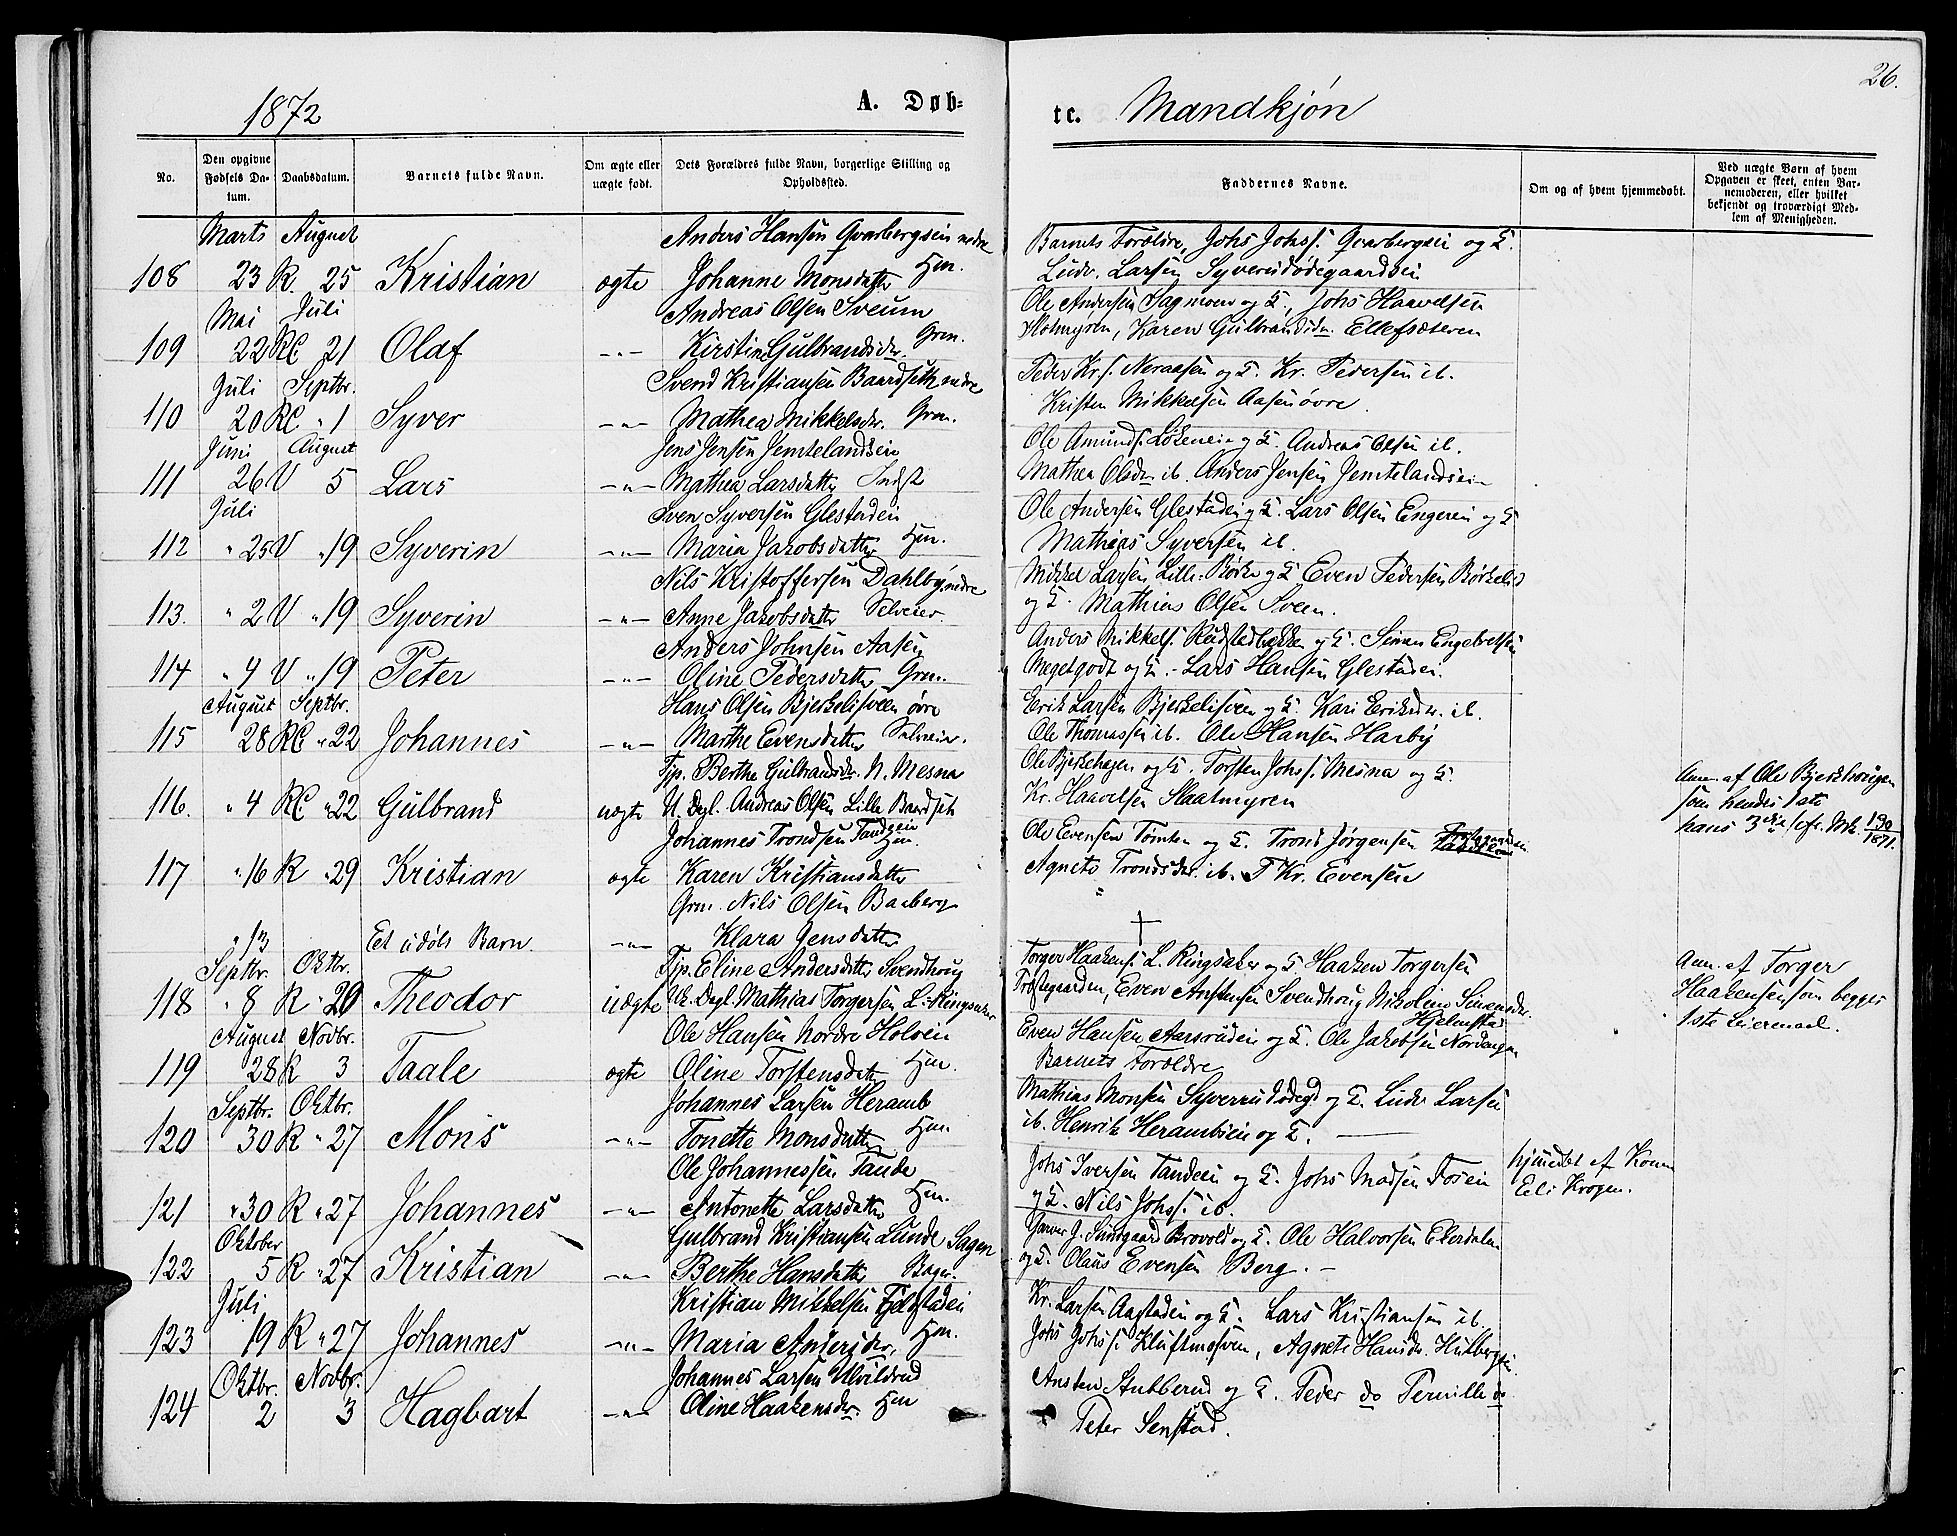 1872
A. Døb-
No.
Den opgivne Fødsels Da-tum.
Daabsdatum.
Barnets fulde Navn.
Om ægte eller uægte født.
Dets Forældres fulde Navn, borgerlige Stilling og Opholdssted.
Marts August Anders Hansen Qvarbergseien nedre
108 23 R. 25 Kristian ægte Johanne Monsdatter Hm.
Mai Juli Andreas Olsen Sveum
109 22 RC 21 Olaf -"- Kirstine Gulbrandsdr. Grm.
Juli Septbr. Svend Kristiansen Baardseth nedre
110 20 RC " 1 Syver -"- Mathea Mikkelsdr. Grm.
Juni August Jens Jensen Jemtelandseie
111 26 V 5 Lars -"- Mathea Larsdatter Indst
Juli Sven Syversen Glestadei
112 " 25 V " 19 Syverin -"- Maria Jacobsdatter Hm.
Nils Kristoffersen Dahlby nedre
113. " 2 V " 19 Syverin -"- Anne Jakobsdatter Selveier.
Anders Johnsen Aasen
114 " 4 V " 19 Peter -"- Oline Pedersdatter Grm.
August Septbr. Hans Olsen Bjerkelisveen øvre
115 28 RC " 22 Johannes -"- Marthe Evensdatter Selveier.
Tjp. Berthe Gulbrandsdr. N. Mesna
116. " 4 RC " 22 Gulbrand uægte U. Dagl. Andreas Olsen Lille Baardseth
Johannes Trondsen Tandeeie Hm.
117 " 16 R " 29 Kristian ægte Karen Kristiansdatter
Grm. Nils Olsen Baberg
" 13 Et udøbt Barn. -"- Klara Jensdatter
Septbr. Oktbr. Tjp. Eline Andersdatter Svendhoug
118 " 8 R " 20 Theodor uægte Uk. Dagl. Mathias Torgersen L. Ringsaker
August Novbr. Ole Hansen Nordre Holoein
119 28 R 3 Taale ægte Oline Torstensdatt Hm.
Septbr. Oktbr. Johannes Larsen Heramb
120 30 R " 27 Mons -"- Tonette Monsdatter Hm
Ole Johannessen Tande
121 " 30 R " 27 Johannes -"- Antonette Larsdatter Hm.
Oktober Gulbrand Kristiansen Lunde Sagen
122 5 R " 27 Kristian -"- Berthe Hansdatter Bager.
Juli Kristian Mikkelsen Fjelstadeie
123 19 R " 27 Johannes -"- Maria Andersdr. Hm.
Oktbr. Novbr. Johannes Larsen Ulvildrud
124 2 3 Hagbart -"- Oline Haakensdr. Hm
26.
te. Mandkjøn
Faddernes Navne.
Om og af hvem hjemmedøbt.
Ved uægte Børn af hvem Opgaven er skeet, enten Bar-nemoderen, eller hvilket bekjendt og troværdigt Med-lem af Menigheden.
Barnets Forældre, Johs Johss. Qvarbergseie og H.
Ludv. Larsen Syverudødegaardseie
Ole Andersen Sagmoen og H., Johs Haavelsen
Slotmyren, Karen Gulbrandsdr. Ellefsæteren
Peder Kr.s. Neraasen og H. Kr. Pedersen ib.
Kristen Mikkelsen Aasen øvre.
Ole Amunds. Løkeneie og H. Andreas Olsen ib.
Mathea Olsdr ib. Anders Jensen Jemtelandseie
Ole Andersen Glestadei og H. Lars Olsen Engereie og H
Mathias Syversen ib.
Mikkel Larsen Lille-Børke og H Even Pedersen Børkelid
og H. Mathias Olsen Sveen.
Anders Mikkels. Rudstedbakken og H. Simen Engebretsen
Megetgodt og H. - Lars Hansen Glestadei.
Erik Larsen Bjerkelisveen og H. Kari Eriksdr. ib.
Ole Thomassen ib. Ole Hansen Harby
Ole Bjerkehagen og H. Torsten Johss. Mesna og H.
Kr. Haavelsen Slaatmyren
Anm. af Ole Bjerkehougen
som hendes 1ste
hans 3die / cfr. No. 190/1871.
Ole Evensen Tømten og H. Trond Jørgensen
Agnete Trondsdr. ib. T Kr. Evensen
"
Torger Haakens. L. Ringsaker og H Haaken Torgersen
Præstegaarden, Even Anstensen Svendhoug Nikoline Simensdr.
Hjelmstad
Anm. af Torger
Haakensen som begges
1ste Leiermaal.
Even Hansen Aarsrudeie og H. Ole Jakobsen Nordengen
Barnets Forældre
Mathias Monsen Syverudødegd og H. Ludv Larsen
ib. Henrik Herambeie og H.
Johs Iversen Tandeeie og H. Johs Madsen Foseie
og H. Nils Johss. ib.
hjmdbt af Konen
Eli Krogen.
Garver J. Sundgaard Brovold og H. Ole Halvorsen Ekerdalen
og H. Olaus Evensen Berg. -
Kr. Larsen Aagstadei og H. Lars Kristiansen ib.
Johs Johss. Kluftmosven, Agnete Hansdr. Hulbergei
Ansten Stubberud og H. Peder do Pernille do
Peter Senstad.